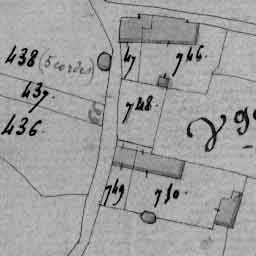 438 (5 cordes)
437.
436.
47
746.
748.
749
750.